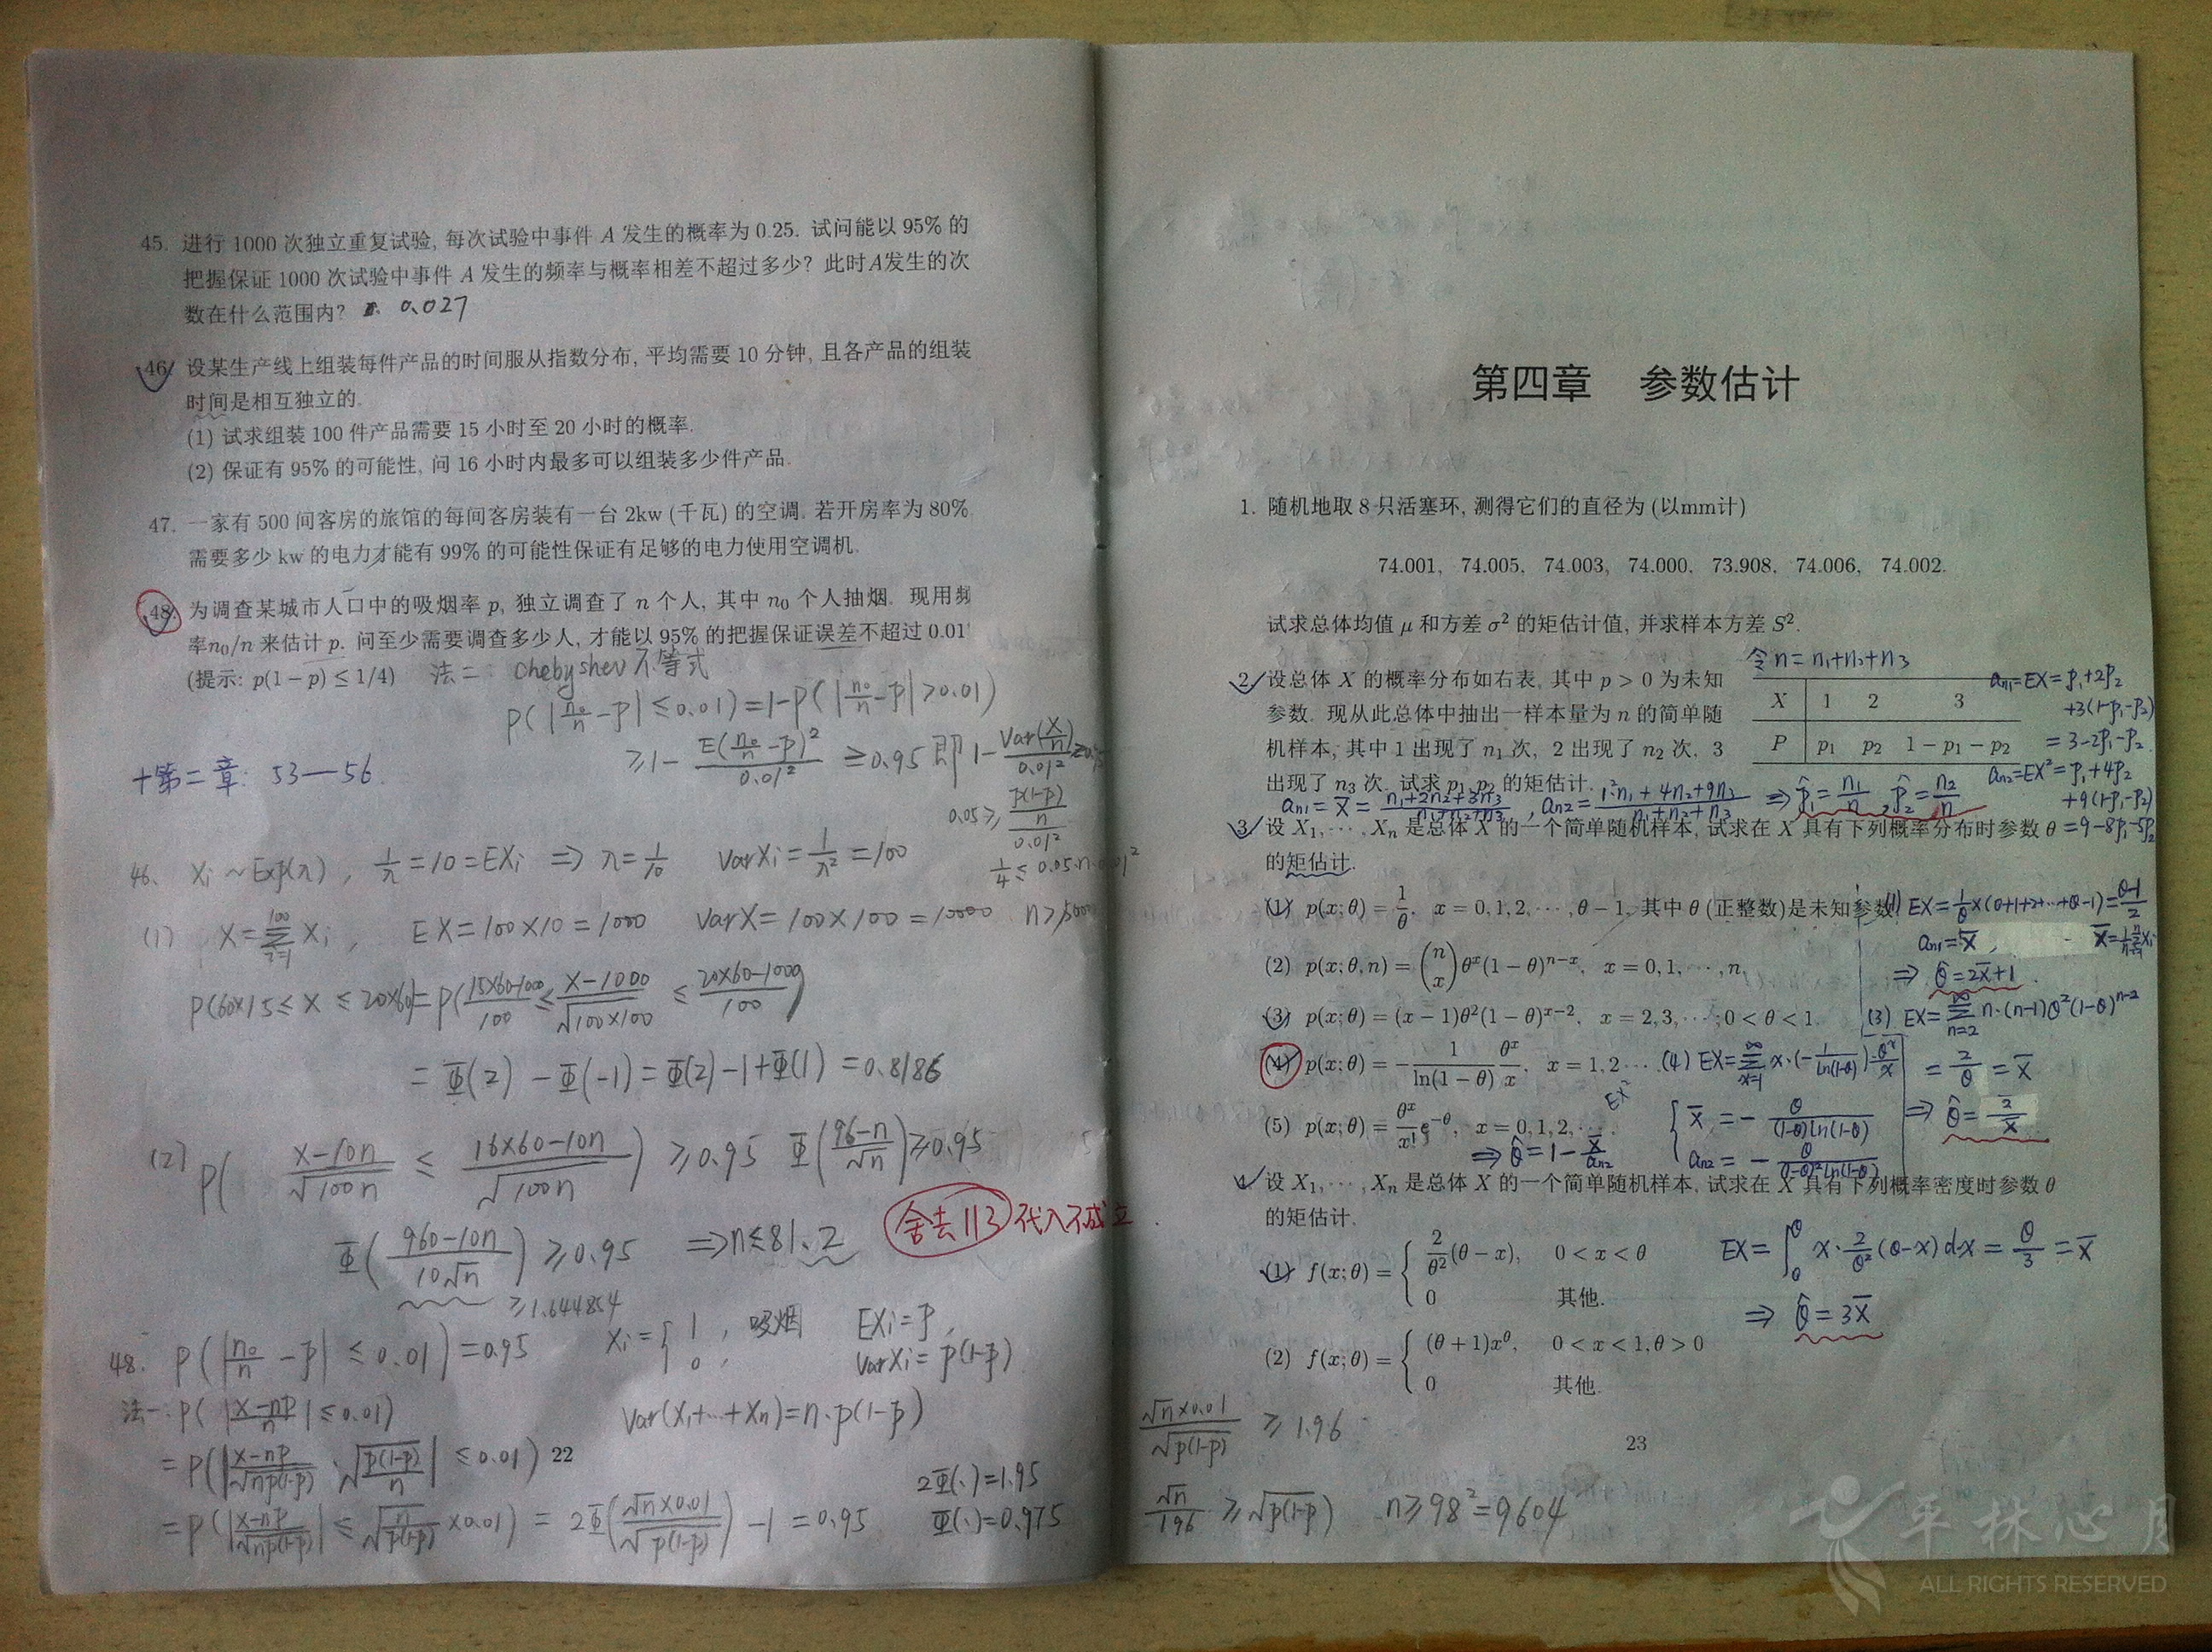 45. 进行 1000 次独立重复试验, 每次试验中事件 A 发生的概率为 0.25. 试问能以 95% 的
把握保证 1000 次试验中事件 A 发生的频率与概率相差不超过多少? 此时A发生的次
数在什么范围内? 0.027
46. 设某生产线上组装每件产品的时间服从指数分布, 平均需要 10 分钟, 且各产品的组装
时间是相互独立的.
(1) 试求组装 100 件产品需要 15 小时至 20 小时的概率.
(2) 保证有 95% 的可能性, 问 16 小时内最多可以组装多少件产品.
47. 一家有 500 间客房的旅馆的每间客房装有一台 2kw (千瓦) 的空调. 若开房率为 80%
需要多少 kw 的电力才能有 99% 的可能性保证有足够的电力使用空调机.
48. 为调查某城市人口中的吸烟率 p, 独立调查了 n 个人, 其中 n₀ 个人抽烟. 现用频
率n₀/n 来估计 p. 问至少需要调查多少人, 才能以 95% 的把握保证误差不超过 0.01
(提示: p(1 − p) ≤ 1/4) 法二: Chebyshev不等式
P(|n₀/n − p| ≤ 0.01) = 1−P(|n₀/n − p| > 0.01)
≥ 1 − E(n₀/n − p)²/0.01² ≥ 0.95 即 1 − Var(X/n)/0.01²
+第二章: 53—56.
0.05 ≥ (p(1−p)/n)/0.01²
1/4 ≤ 0.05·n·0.01²
46、 Xi ~ Exp(λ), 1/λ = 10 = EXi ⇒ λ = 1/10 VarXi = 1/λ² = 100
(1) X = Σ(i=1→100) Xi, EX = 100×10 = 1000 VarX = 100×100 = 10000 n ≥ 50000
P(60×15 ≤ X ≤ 20×60) = P((15×60−1000)/100 ≤ (X−1000)/√(100×100) ≤ (20×60−1000)/100)
= Φ(2) − Φ(−1) = Φ(2) − 1 + Φ(1) = 0.8186
(2) P((X−10n)/√(100n) ≤ (16×60−10n)/√(100n)) ≥ 0.95 Φ((96−n)/√n) ≥ 0.95
Φ((960−10n)/(10√n)) ≥ 0.95 ⇒ n ≤ 81.2 舍去113 代入不成立
≥ 1.644854
48. P(|n₀/n − p| ≤ 0.01) = 0.95 Xi = { 1, 吸烟 EXi = p,
0, VarXi = p(1−p)
法一: P(|(X−np)/n| ≤ 0.01) Var(X₁+…+Xn) = n·p(1−p)
= P(|(X−np)/√(np(1−p)) · √(p(1−p)/n)| ≤ 0.01)
22
= P(|(X−np)/√(np(1−p))| ≤ √(n/(p(1−p))) ×0.01) = 2Φ(√n×0.01/√(p(1−p))) − 1 = 0.95
2Φ(.) = 1.95
Φ(.) = 0.975
第四章 参数估计
1. 随机地取 8 只活塞环, 测得它们的直径为 (以mm计)
74.001, 74.005, 74.003, 74.000, 73.908, 74.006, 74.002.
试求总体均值 μ 和方差 σ² 的矩估计值, 并求样本方差 S².
令 n = n₁+n₂+n₃
2. 设总体 X 的概率分布如右表, 其中 p > 0 为未知
参数. 现从此总体中抽出一样本量为 n 的简单随
机样本, 其中 1 出现了 n₁ 次, 2 出现了 n₂ 次, 3
出现了 n₃ 次. 试求 p₁, p₂ 的矩估计.
X 1 2 3
P p₁ p₂ 1 − p₁ − p₂
an₁ = EX = p₁+2p₂
+3(1−p₁−p₂)
= 3−2p₁−p₂
an₂ = EX² = p₁+4p₂
+9(1−p₁−p₂)
= 9−8p₁−5p₂
an₁ = X̄ = (n₁+2n₂+3n₃)/(n₁+n₂+n₃), an₂ = (1²n₁+4n₂+9n₃)/(n₁+n₂+n₃) ⇒ p̂₁ = n₁/n, p̂₂ = n₂/n
3. 设 X₁, ⋯, Xn 是总体 X 的一个简单随机样本, 试求在 X 具有下列概率分布时参数 θ
的矩估计.
(1) p(x; θ) = 1/θ, x = 0, 1, 2, ⋯, θ − 1, 其中 θ (正整数)是未知参数.
(1) EX = 1/θ×(0+1+2+…+θ−1) = (θ−1)/2
an₁ = X̄, X̄ = 1/n Σ(i=1→n) Xi
⇒ θ̂ = 2X̄+1.
(2) p(x; θ, n) = (n x) θˣ(1 − θ)ⁿ⁻ˣ, x = 0, 1, ⋯, n.
(3) p(x; θ) = (x − 1)θ²(1 − θ)ˣ⁻², x = 2, 3, ⋯; 0 < θ < 1.
(3) EX = Σ(n=2→∞) n·(n−1)θ²(1−θ)ⁿ⁻²
= 2/θ = X̄
⇒ θ̂ = 2/X̄
(4) p(x; θ) = −1/ln(1 − θ) θˣ/x, x = 1, 2 ⋯.
(4) EX = Σ(x=1→∞) x·(−1/ln(1−θ))·θˣ/x
{ X̄ = −θ/((1−θ)ln(1−θ))
EX²
an₂ = −θ/((1−θ)²ln(1−θ))
(5) p(x; θ) = θˣ/x! e⁻θ, x = 0, 1, 2, ⋯.
⇒ θ̂ = 1 − X̄/an₂
4. 设 X₁, ⋯, Xn 是总体 X 的一个简单随机样本, 试求在 X 具有下列概率密度时参数 θ
的矩估计.
(1) f(x; θ) = { 2/θ² (θ − x), 0 < x < θ
0 其他.
EX = ∫₀θ x·2/θ²(θ−x)dx = θ/3 = X̄
⇒ θ̂ = 3X̄
(2) f(x; θ) = { (θ + 1)xθ, 0 < x < 1, θ > 0
0 其他.
√n×0.01/√(p(1−p)) ≥ 1.96
23
√n/196 ≥ √(p(1−p)) n ≥ 98² = 9604
平林沁月
ALL RIGHTS RESERVED